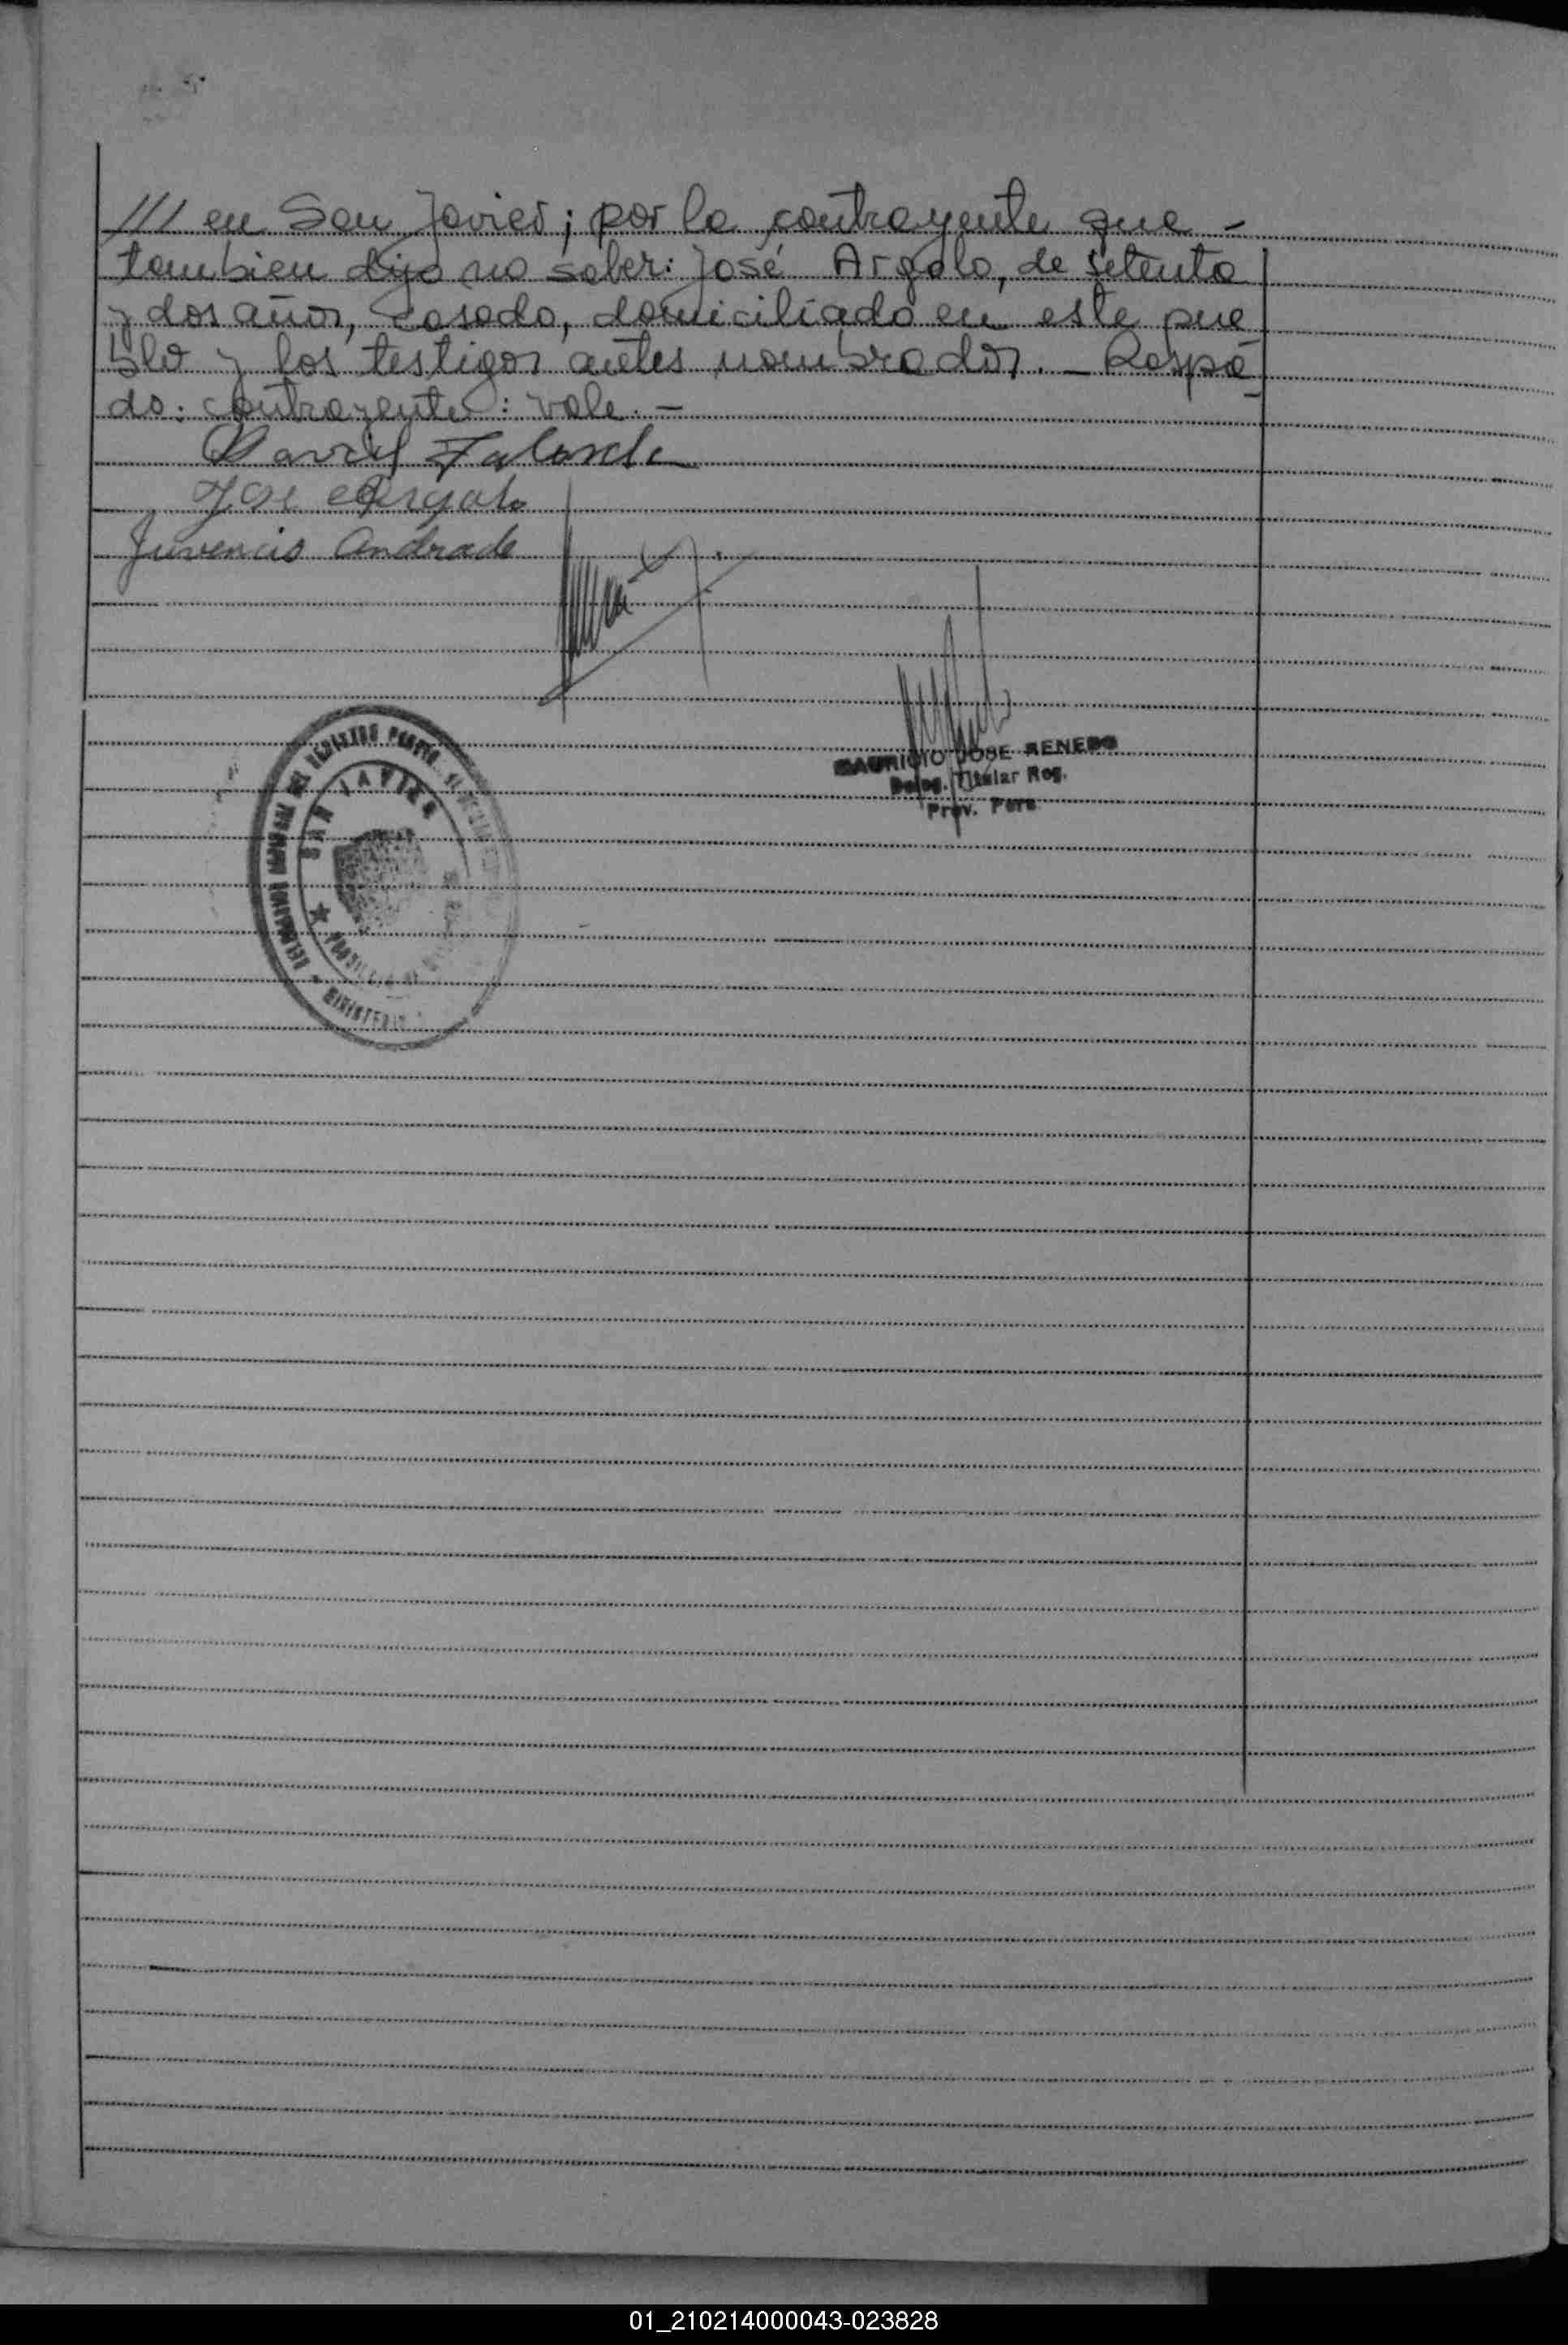 /// en San Javier; por la contrayente que -
tambien dijo no saber: José Argalo, de setenta
y dos años, casado, domiciliado en este pue
blo y los testigos antes nombrados. - Raspa
do: contrayente: vale. -
Jose Argalo
Juvencio Andrade
MAURICIO JOSE RENEDO
Deleg. Titular Reg.
Prov. Pers.
SAN JAVIER
MINISTERIO
01_210214000043-023828